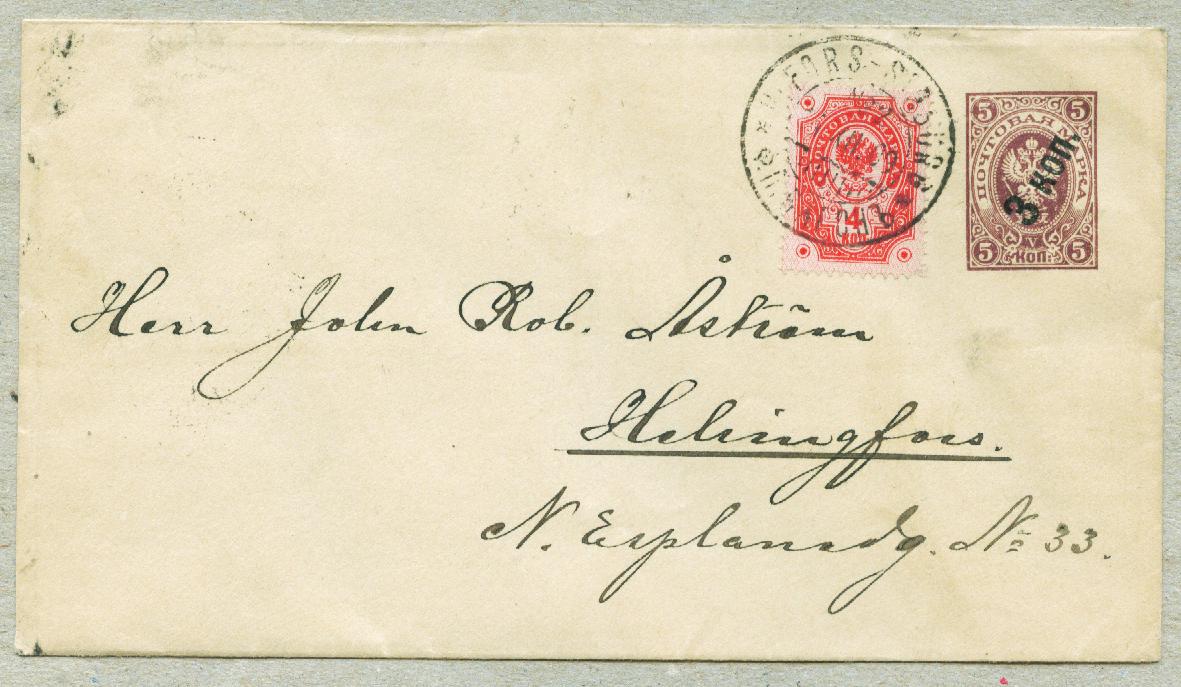 H.FORS-
ПОЧТОВАЯ МАРКА
4
КОП
5 5
ПОЧТОВАЯ МАРКА
3 КОП.
5 V 5
КОП.
Herr John Rob. Åström
Helsingfors.
N. Esplanadg. No 33.